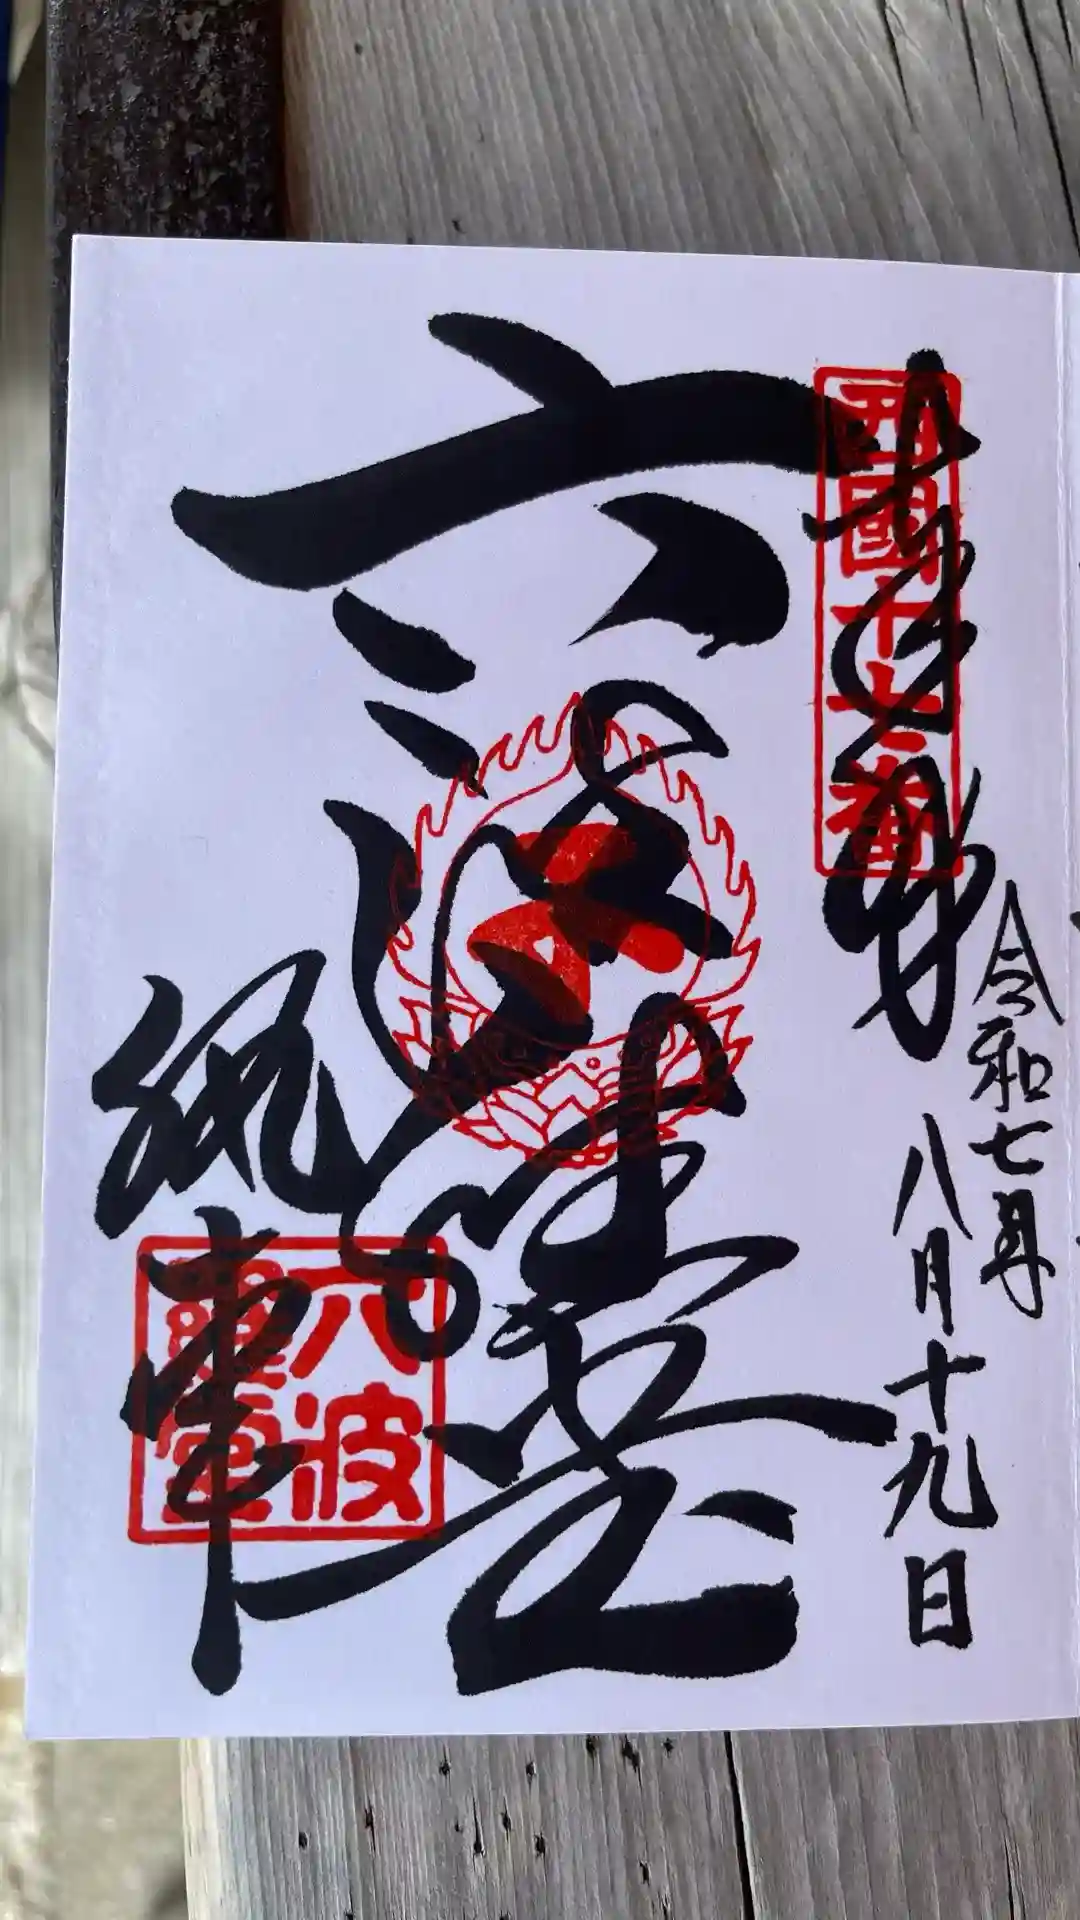 奉拝
西國十七番
令和七年
八月十九日
六波羅堂
執事
六波
羅堂